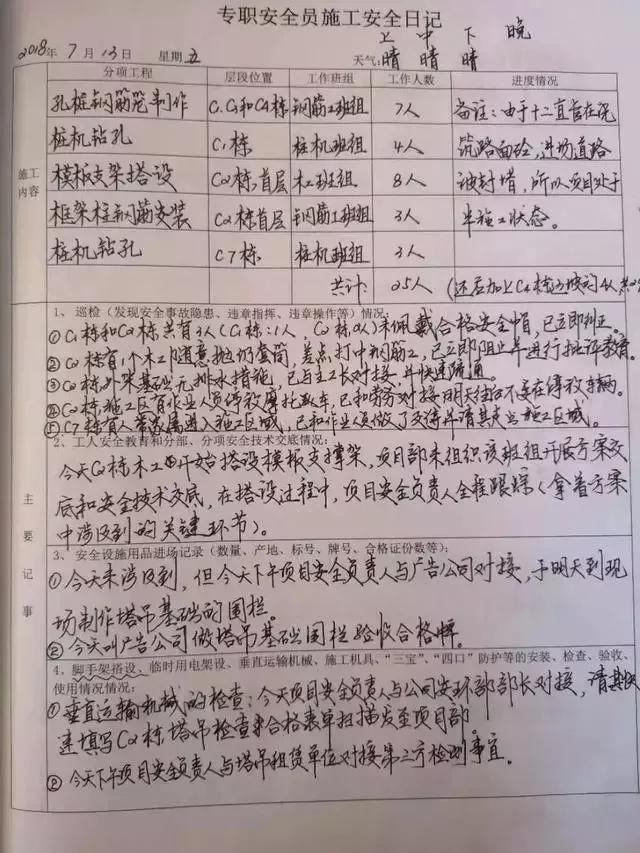 专职安全员施工安全日记
上 中 下 晚
2018年 7月 13日 星期五 天气: 晴 晴 晴
分项工程 层段位置 工作班组 工作人数 进度情况
施工内容
孔桩钢筋笼制作 钢筋工班组 7人 备注:由于十二直管在浇
桩机钻孔 C1栋 桩机班组 4人 筑路面砼,进场道路
模板支架搭设 C2栋,首层 木工班组 8人 被封堵,所以项目处于
框架柱钢筋安装 C2栋首层 钢筋工班组 3人 半施工状态。
桩机钻孔 C7栋 桩机班组 3人
共计: 25人
主要记事
1、巡检(发现安全事故隐患、违章指挥、违章操作等)情况:
①C1栋和C2栋共有3人(C1栋:1人,C2栋2人)未佩戴合格安全帽,已立即纠正。
②C2栋有1个木工随意抛扔套筒,差点打中钢筋工,已立即阻止并进行批评教育。
③C2栋外架基础无排水措施,已与主工长对接,并快速疏通。
④C2栋施工区有作业人员停放摩托车,已和劳务对接明天往后不要在停放车辆。
⑤C7栋有人带家属进入施工区域,已和作业人员做了交待并请其走出施工区域。
2、工人安全教育和分部、分项安全技术交底情况:
今天C2栋木工班开始搭设模板支撑架,项目部未组织该班组开展方案交
底和安全技术交底,在搭设过程中,项目安全负责人全程跟踪(拿着方案
中涉及到的关键环节)。
3、安全设施用品进场记录(数量、产地、标号、牌号、合格证份数等):
①今天未涉及到,但今天下午项目安全负责人与广告公司对接,于明天到现
场制作塔吊基础的围栏。
②今天叫广告公司做塔吊基础围栏验收合格牌。
4、脚手架搭设、临时用电架设、垂直运输机械、施工机具、“三宝”、“四口”防护等的安装、检查、验收、
使用情况情况:
①垂直运输机械的检查:今天项目安全负责人与公司安环部部长对接,请其快
速填写C2栋塔吊检查合格表单扫描发至项目部。
②今天下午项目安全负责人与塔吊租赁单位对接第三方检测事宜。